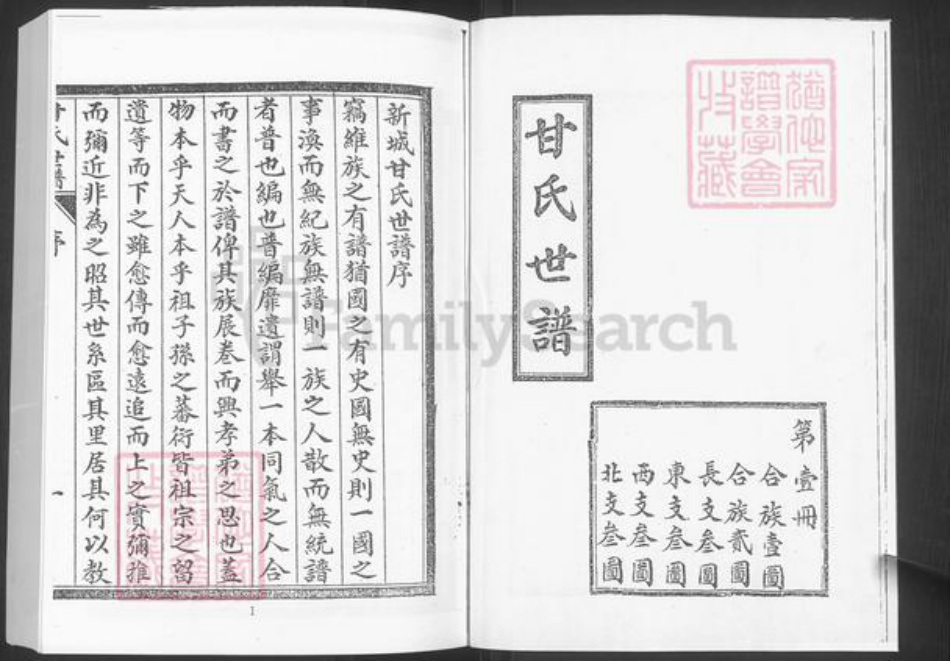 甘氏世譜
第壹冊
合族壹圖
合族貳圖
長支叁圖
東支叁圖
西支叁圖
北支叁圖
猶他家
譜學會
收藏
新城甘氏世譜序
竊維族之有譜猶國之有史國無史則一國之
事渙而無紀族無譜則一族之人散而無統譜
者普也編也普編靡遺謂舉一本同氣之人合
而書之於譜俾其族展卷而興孝弟之思也蓋
物本乎天人本乎祖子孫之蕃衍皆祖宗之留
遺等而下之雖愈傳而愈遠追而上之實彌推
而彌近非為之昭其世系區其里居其何以教
甘氏世譜
序
一
1
FamilySearch